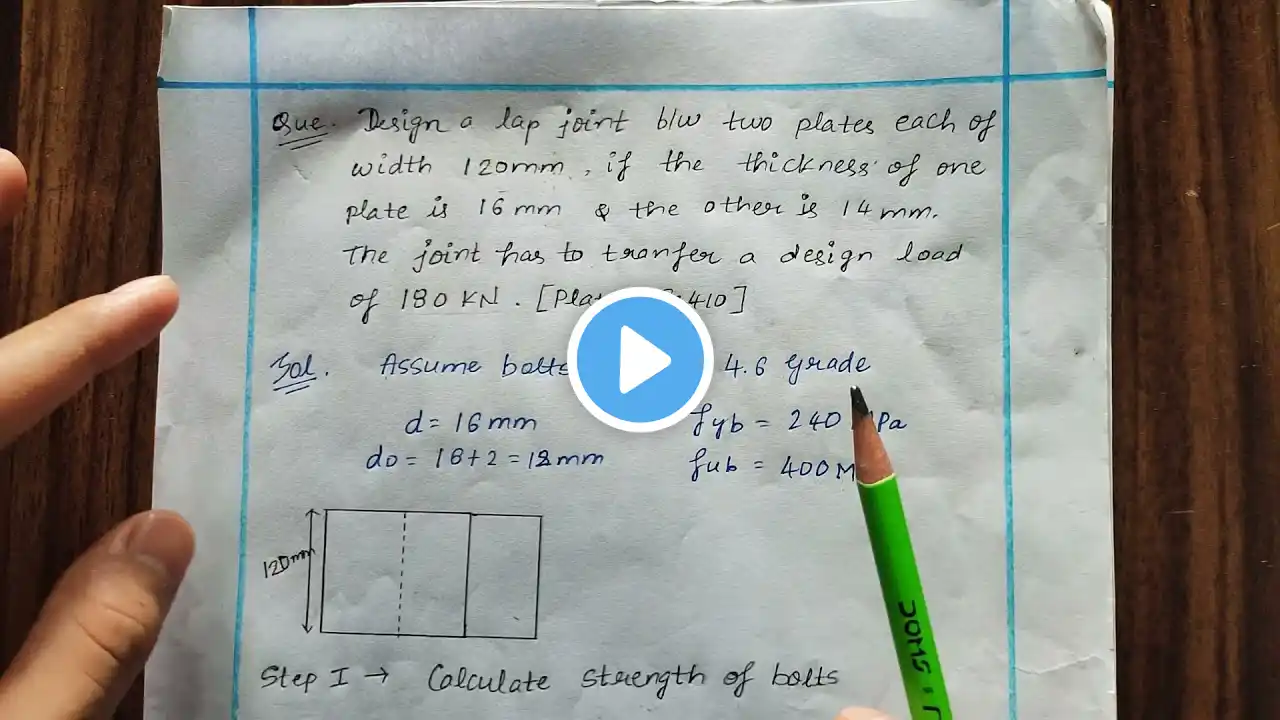 Que. Design a lap joint b/w two plates each of
width 120mm, if the thickness of one
plate is 16 mm & the other is 14 mm.
The joint has to tranfer a design load
of 180 KN. [Pla 410]
Sol. Assume bolts 4.6 grade
d = 16mm fyb = 240 Pa
do = 16+2 = 18mm fub = 400 M
120mm
Step I → Calculate strength of bolts
DOMS